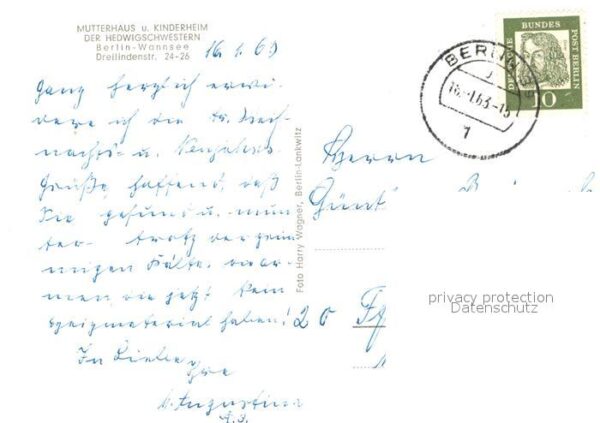 MUTTERHAUS u. KINDERHEIM
DER HEDWIGSCHWESTERN
Berlin-Wannsee
Dreilindenstr. 24-26
16.1.63
Ganz herzlich erwi-
dere ich die Weih-
nachts- u. Neujahrs-
Grüße, hoffend, daß
Sie gesund u. mun-
ter - trotz der grim-
migen Kälte,
wie jetzt
haben!
In Liebe
Ihre
M. Augustina
Foto Harry Wagner, Berlin-Lankwitz
DEUTSCHE BUNDESPOST BERLIN
10
BERLIN
1
Herrn
Günt
20
privacy protection
Datenschutz